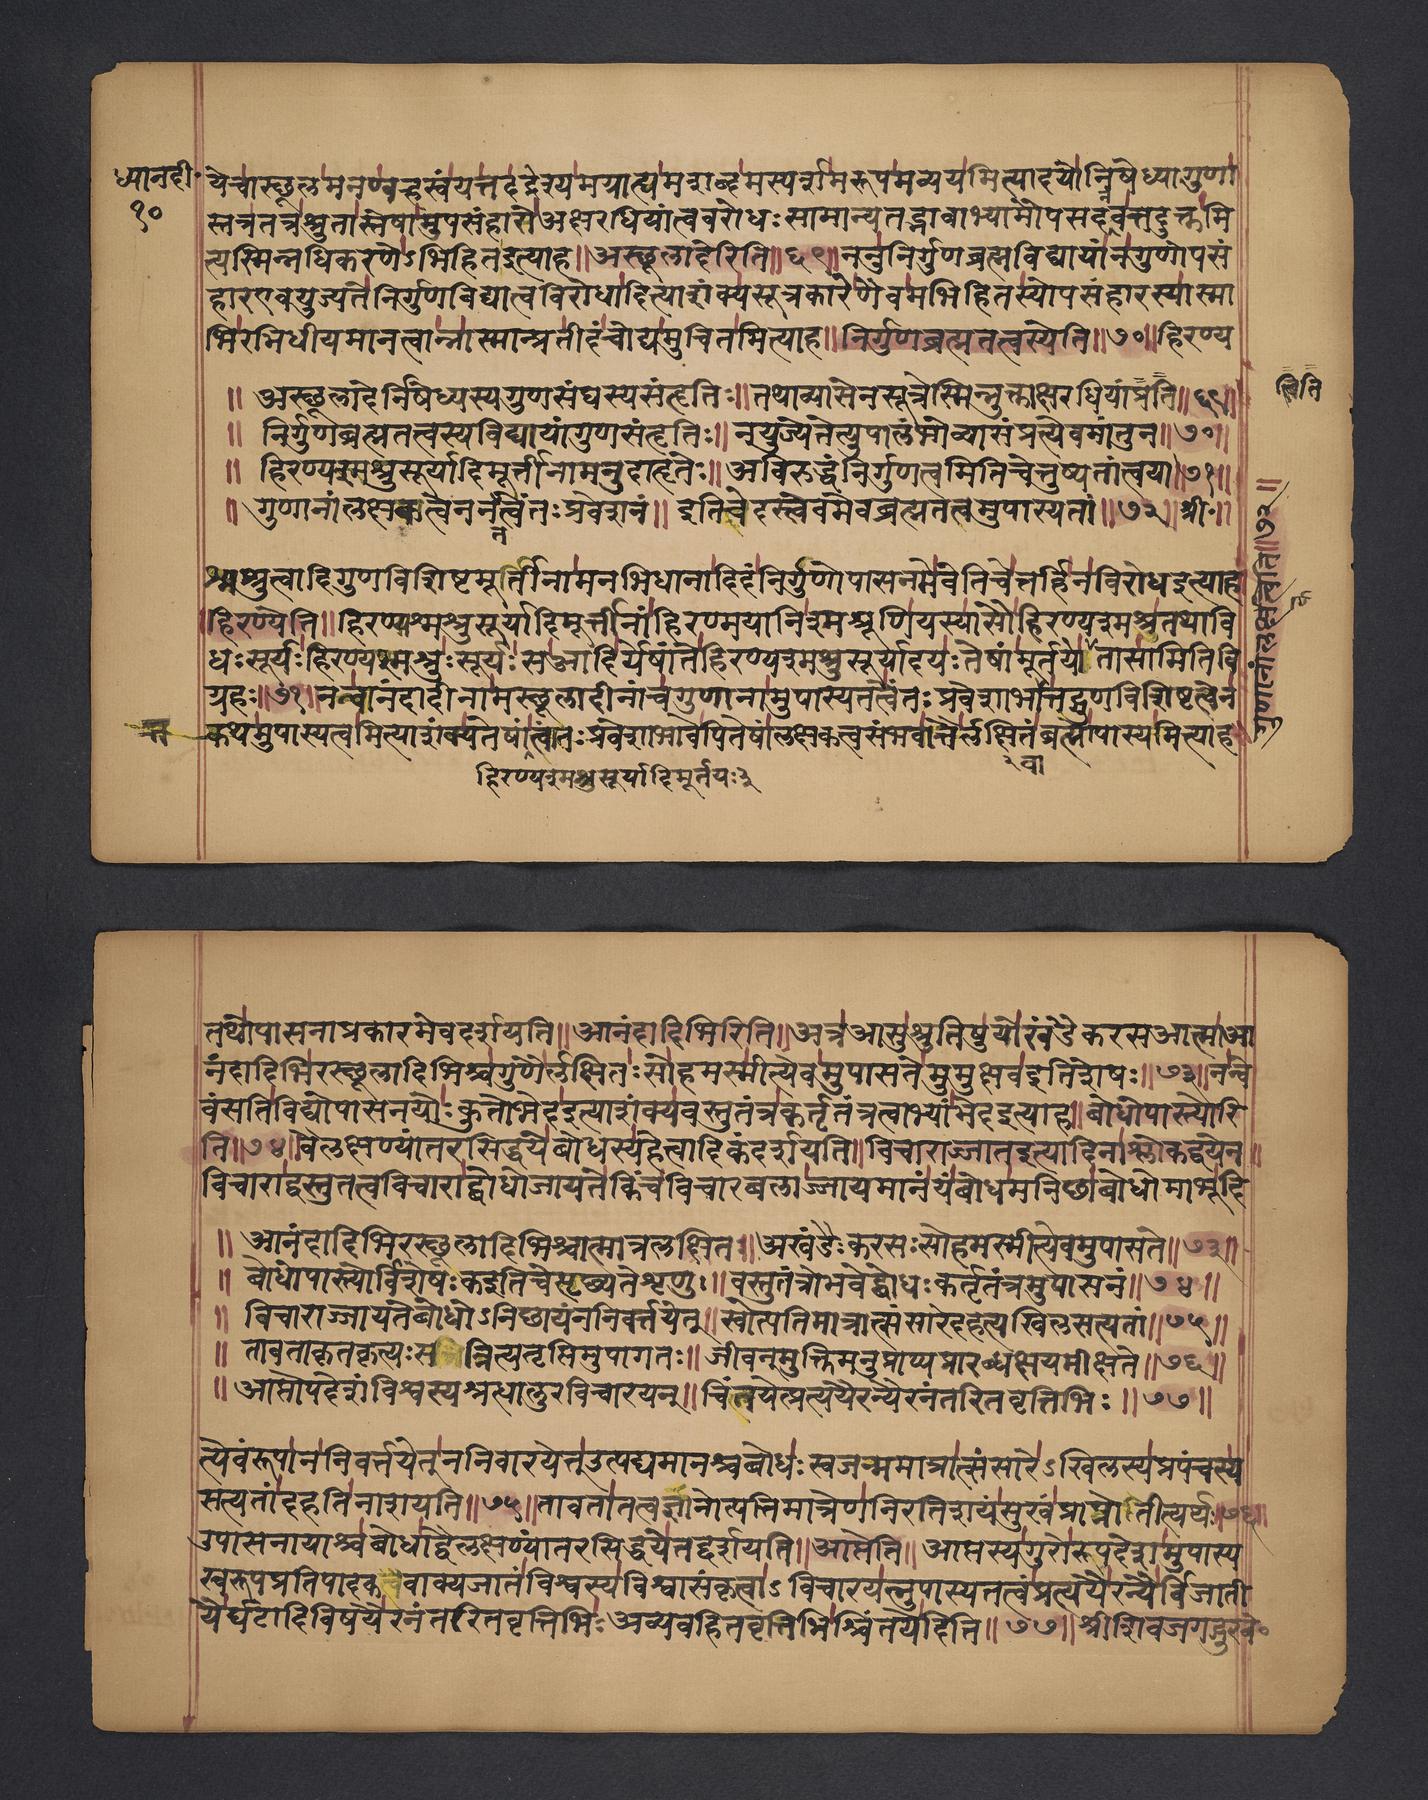 ध्यानदी॰
१०
येचास्थूलमनण्वह्रस्वंयत्तदद्रेश्यमग्राह्यमशब्दमस्पर्शमरूपमव्ययमित्यादयोनिषेध्यागुणा
स्तत्रतत्रश्रुतास्तेषामुपसंहारोअक्षरधियांत्ववरोधःसामान्यतद्भावाभ्यामौपसदवत्तदुक्तमि
त्यस्मिन्नधिकरणेऽभिहितइत्याह॥अस्थूलादेरिति॥६९॥ननुनिर्गुणब्रह्मविद्यायांनगुणोपसं
हारएवयुज्यतेनिर्गुणविद्यात्वविरोधादित्याशंक्यसूत्रकारेणैवमभिहितस्योपसंहारस्यास्मा
भिरभिधीयमानत्वान्नास्मान्प्रतीदंचोद्यमुचितमित्याह॥निर्गुणब्रह्मतत्वस्येति॥७०॥हिरण्य
॥अस्थूलादेर्निषेध्यस्यगुणसंघस्यसंहृतिः॥तथाव्यासेनसूत्रेस्मिन्नुक्ताक्षरधियांत्विति॥६९॥
॥निर्गुणब्रह्मतत्वस्यविद्यायांगुणसंहृतिः॥नयुज्येतेत्युपालंभोव्यासंप्रत्येवमांतुन॥७०॥
॥हिरण्यश्मश्रुसूर्यादिमूर्त्तीनामनुदाहृतेः॥अविरुद्धंनिर्गुणत्वमितिचेत्तुष्यतांत्वया॥७१॥
॥गुणानांलक्षकत्वेननतत्वेंतःप्रवेशनं॥इतिचेदस्त्वेवमेवब्रह्मतत्वमुपास्यतां॥७२॥श्रीः॥
श्मश्रुत्वादिगुणविशिष्टमूर्तीनामनभिधानादिदंनिर्गुणोपासनमेवेतिचेत्तर्हिनविरोधइत्याह
हिरण्येति॥हिरण्यश्मश्रुसूर्यादिमूर्त्तीनांहिरण्मयानिश्मश्रूणियस्यासौहिरण्यश्मश्रुतथावि
धःसूर्यःहिरण्यश्मश्रुःसूर्यःसआदिर्येषांतेहिरण्यश्मश्रुसूर्यादयःतेषांमूर्तयोतासामितिवि
ग्रहः॥७१॥नन्वानंदादीनामस्थूलादीनांचगुणानामुपास्यतत्वेंतःप्रवेशाभावात्तद्गुणविशिष्टत्वेन
कथमुपास्यत्वमित्याशंक्यतेषांत्वांतःप्रवेशाभावेपितेषांलक्षकत्वसंभवात्तैर्लक्षितंब्रह्मोपास्यमित्याह
हिरण्यश्मश्रुसूर्यादिमूर्तयः३
वा
त्विति
गुणानांलक्षकत्वेति॥७२॥
तथोपासनाप्रकारमेवदर्शयति॥आनंदादिभिरिति॥अत्रआसुश्रुतिषुयोखंडैकरसआत्माआ
नंदादिभिरस्थूलादिभिश्चगुणैर्लक्षितःसोहमस्मीत्येवमुपासतेमुमुक्षवइतिशेषः॥७३॥नन्वे
वंसतिविद्योपासनयोःकुतोभेदइत्याशंक्यवस्तुतंत्रकर्तृतंत्रत्वाभ्यांभेदइत्याह॥बोधोपास्त्योरि
ति॥७४॥वैलक्षण्यांतरसिद्धयेबोधस्यहेत्वादिकंदर्शयति॥विचाराज्जातइत्यादिनाश्लोकद्वयेन॥
विचाराद्वस्तुतत्वविचाराद्बोधोजायतेकिंचविचारबलाज्जायमानंयंबोधमनिछाबोधोमाभूदि
॥आनंदादिभिरस्थूलादिभिश्चात्मात्रलक्षितः॥अखंडैःकरसःसोहमस्मीत्येवमुपासते॥७३॥
॥बोधोपास्त्योर्विशेषःकइतिचेत्सृछ्यतेशृणु।॥वस्तुतंत्रोभवेद्बोधःकर्तृतंत्रमुपासनं॥७४॥
॥विचाराज्जायतेबोधोऽनिछायंननिवर्त्तयेत्॥स्वोत्पतिमात्रात्संसारेदहत्यखिलसत्यतां॥७५॥
॥तावताकृतकृत्यःसन्नित्यतृप्तिमुपागतः॥जीवन्मुक्तिमनुप्राप्यप्रारब्धक्षयमीक्षते॥७६॥
॥आप्तोपदेशंविश्वस्यश्रद्धालुरविचारयन्॥चिंतयेत्प्रत्ययैरन्यैरनंतरितवृत्तिभिः॥७७॥
त्येवंरूपाननिवर्त्तयेत्ननिवारयेत्उत्पद्यमानश्चबोधःस्वजन्ममात्रात्संसारेऽखिलस्यप्रपंचस्य
सत्यतांदहतिनाशयति॥७५॥तावतातत्वज्ञानोत्पत्तिमात्रेणनिरतिशयंसुखंप्राप्नोतीत्यर्थः॥७६॥
उपासनायाश्चबोधाद्वैलक्षण्यांतरसिद्धयेतद्दर्शयति॥आप्तेति॥आप्तस्यगुरोरूपदेशमुपास्य
स्वरूपप्रतिपादकवाक्यजातंविश्वस्यविश्वासंकृत्वाऽविचारयत्नुपास्यतत्वंप्रत्ययैरन्यैर्विजाती
यैर्घटादिविषयैरनंतरितवृत्तिभिःअव्यवहितवृत्तिभिश्चिंतयेदिति॥७७॥श्रीशिवजगद्गुरवे॰